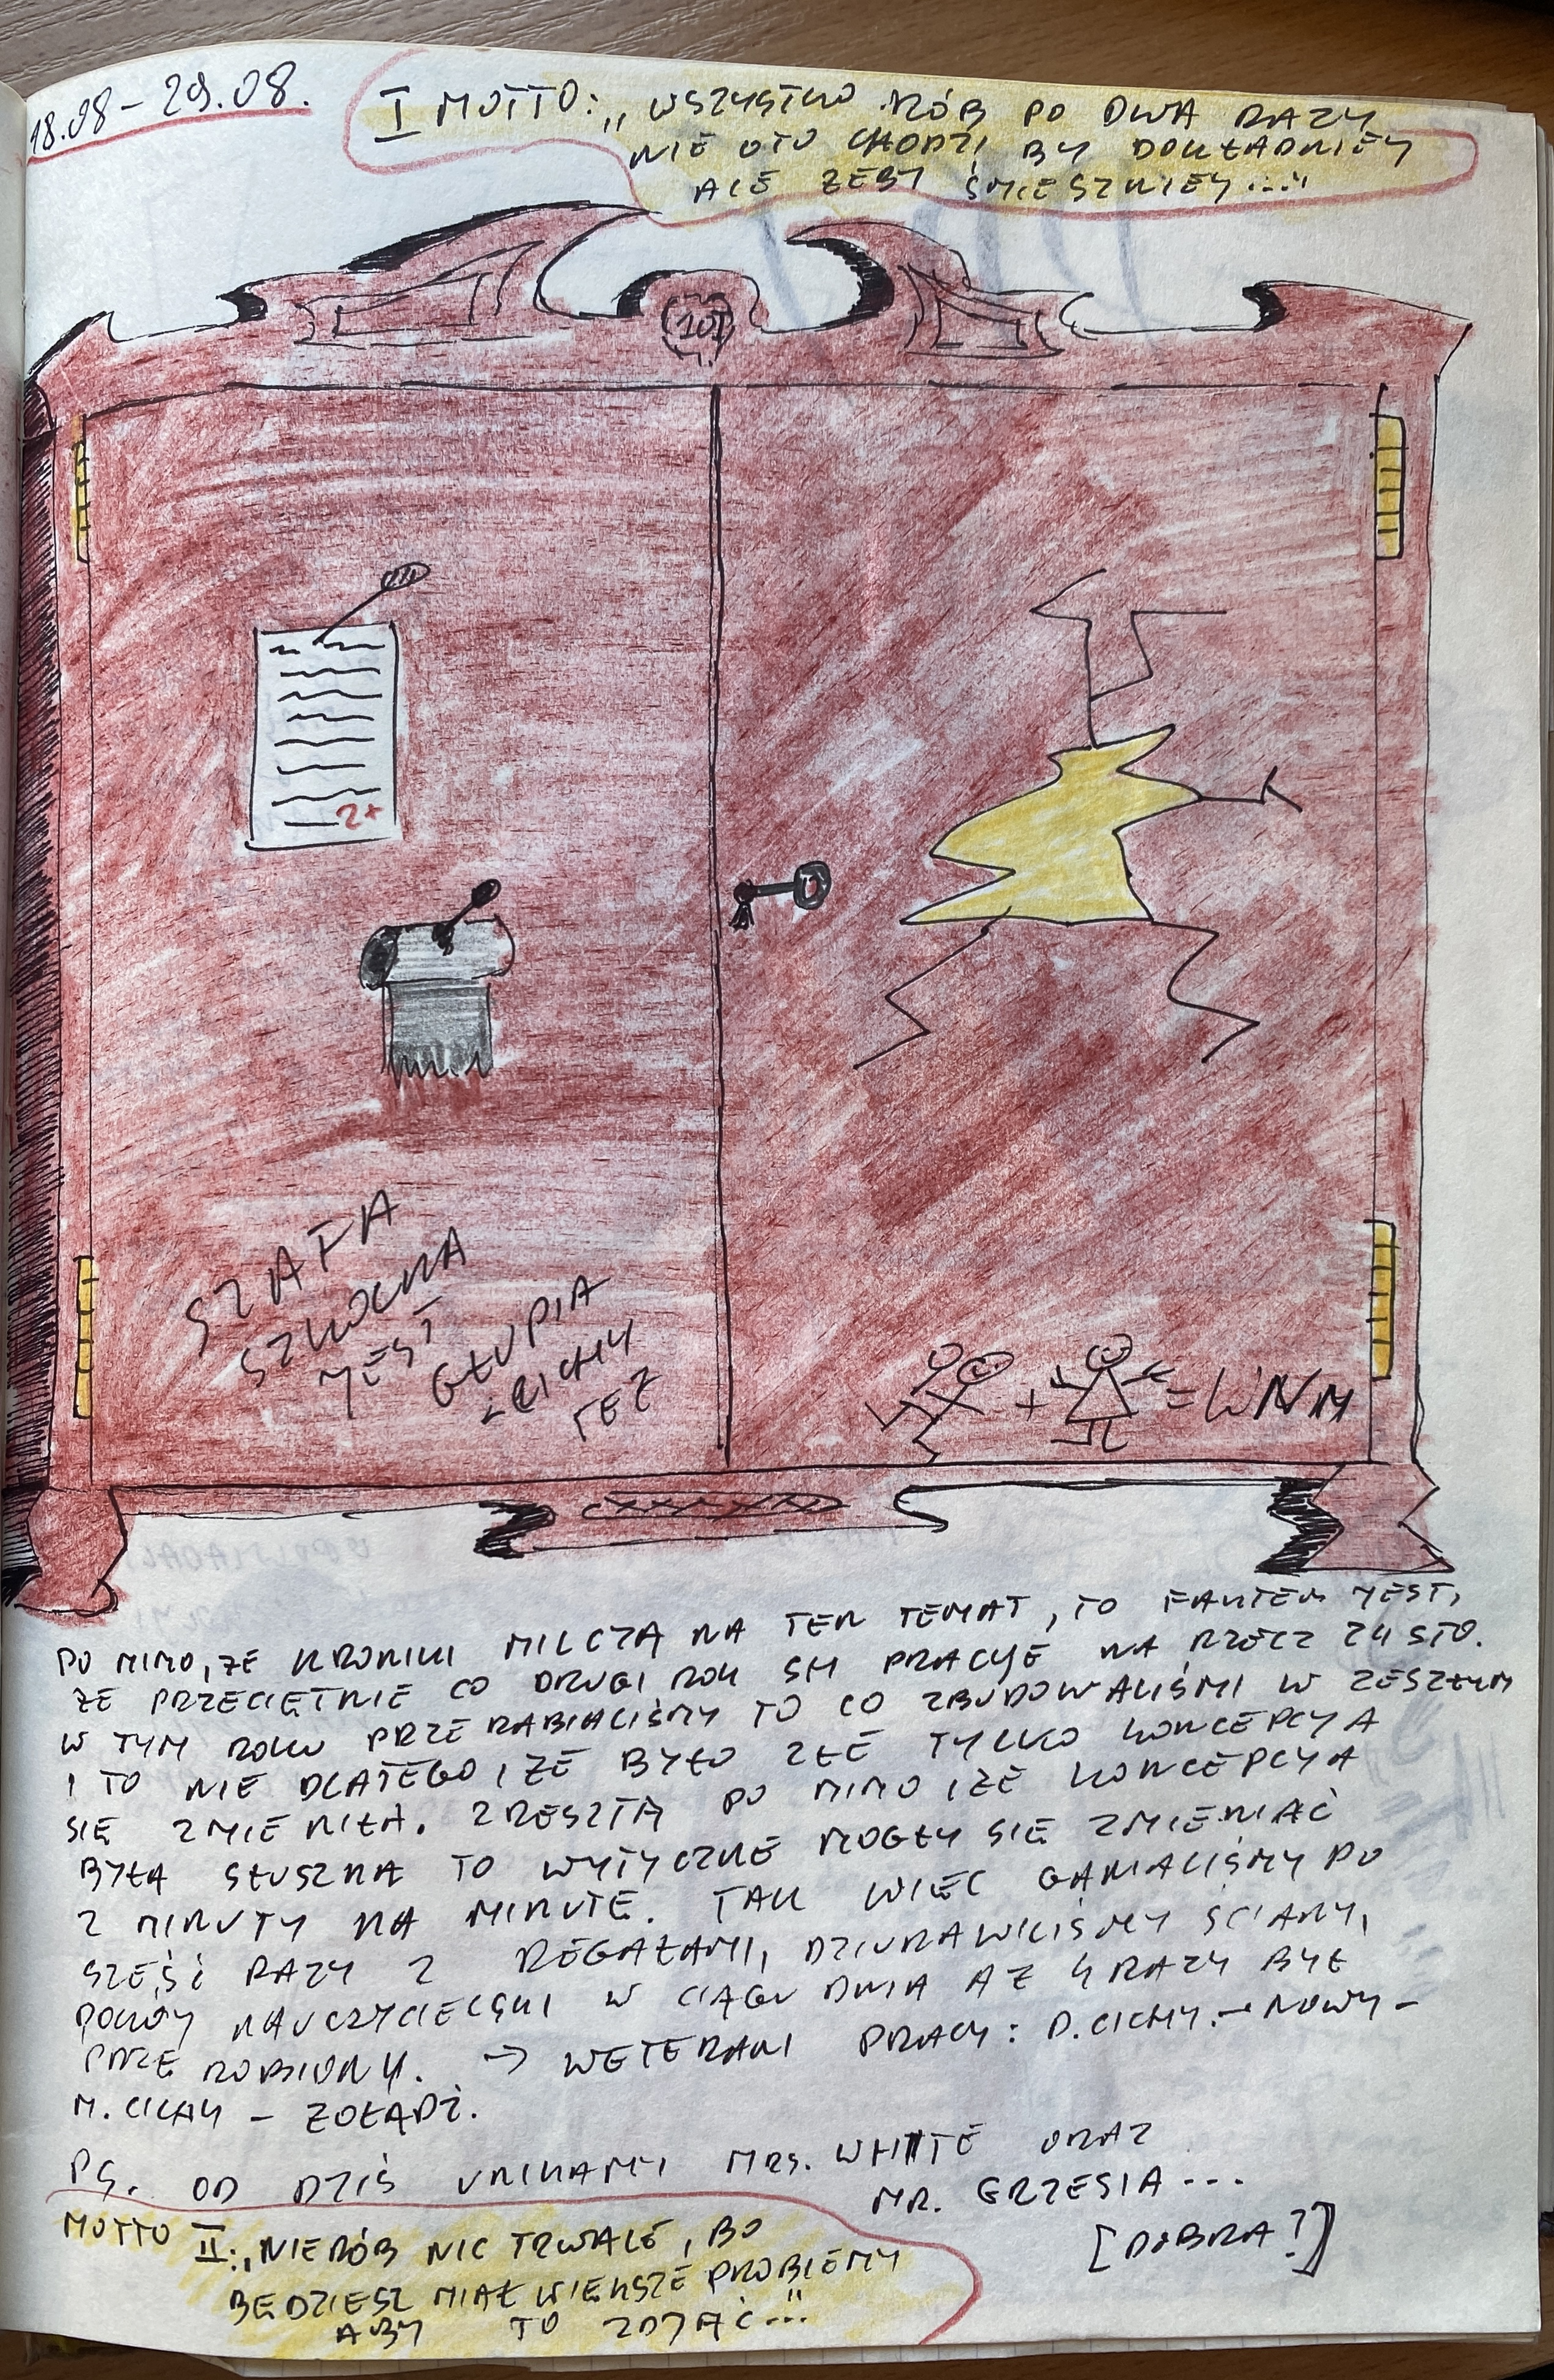 18.08 - 29.08.
I MOTTO: „WSZYSTKO RÓB PO DWA RAZY
NIE OTO CHODZI BY DOKŁADNIEJ
ALE ŻEBY ŚMIESZNIEJ..."
101
2+
SZAFA
SZKOLNA
JEST
GŁUPIA
CICHY
TEŻ
+ = WNM
PO MIMO, ŻE KRONIKI MILCZĄ NA TEN TEMAT, TO FAKTEM JEST,
ŻE PRZECIĘTNIE CO DRUGI ROK SM PRACUJE NA RZECZ ZH STO.
W TYM ROKU PRZERABIALIŚMY TO CO ZBUDOWALIŚMI W ZESZŁYM
I TO NIE DLATEGO, ŻE BYŁO ZŁE TYLKO KONCEPCJA
SIĘ ZMIENIŁA. ZRESZTĄ PO MIMO IŻE KONCEPCJA
BYŁA SŁUSZNA TO WYTYCZNE MOGŁY SIĘ ZMIENIAĆ
Z MINUTY NA MINUTĘ. TAK WIĘC GANIALIŚMY PO
SZEŚĆ RAZY Z REGAŁAMI, DZIURAWILIŚMY ŚCIANY,
POKÓJ NAUCZYCIELSKI W CIĄGU DNIA AŻ 4 RAZY BYŁ
PRZEROBIONY. → WETERANI PRACY: D. CICHY. - NOWY -
M. CICHY - ŻOŁĄDŹ.
PS. OD DZIŚ UNIKAMY MRS. WHITE ORAZ
MR. GRZESIA...
[DOBRA?]
MOTTO II: „NIERÓB NIC TRWALE, BO
BĘDZIESZ MIAŁ WIĘKSZE PROBLEMY
ABY TO ZDJĄĆ..."